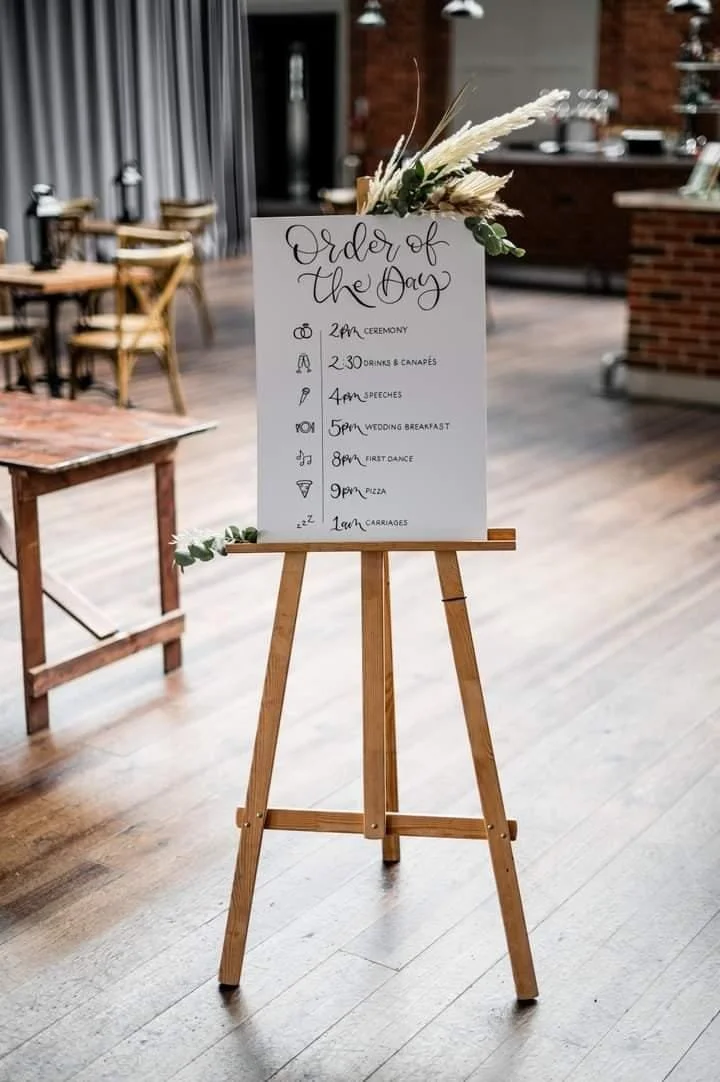 Order of
the Day
2pm CEREMONY
2:30 DRINKS & CANAPÉS
4pm SPEECHES
5pm WEDDING BREAKFAST
8pm FIRST DANCE
9pm PIZZA
zzZ 1am CARRIAGES